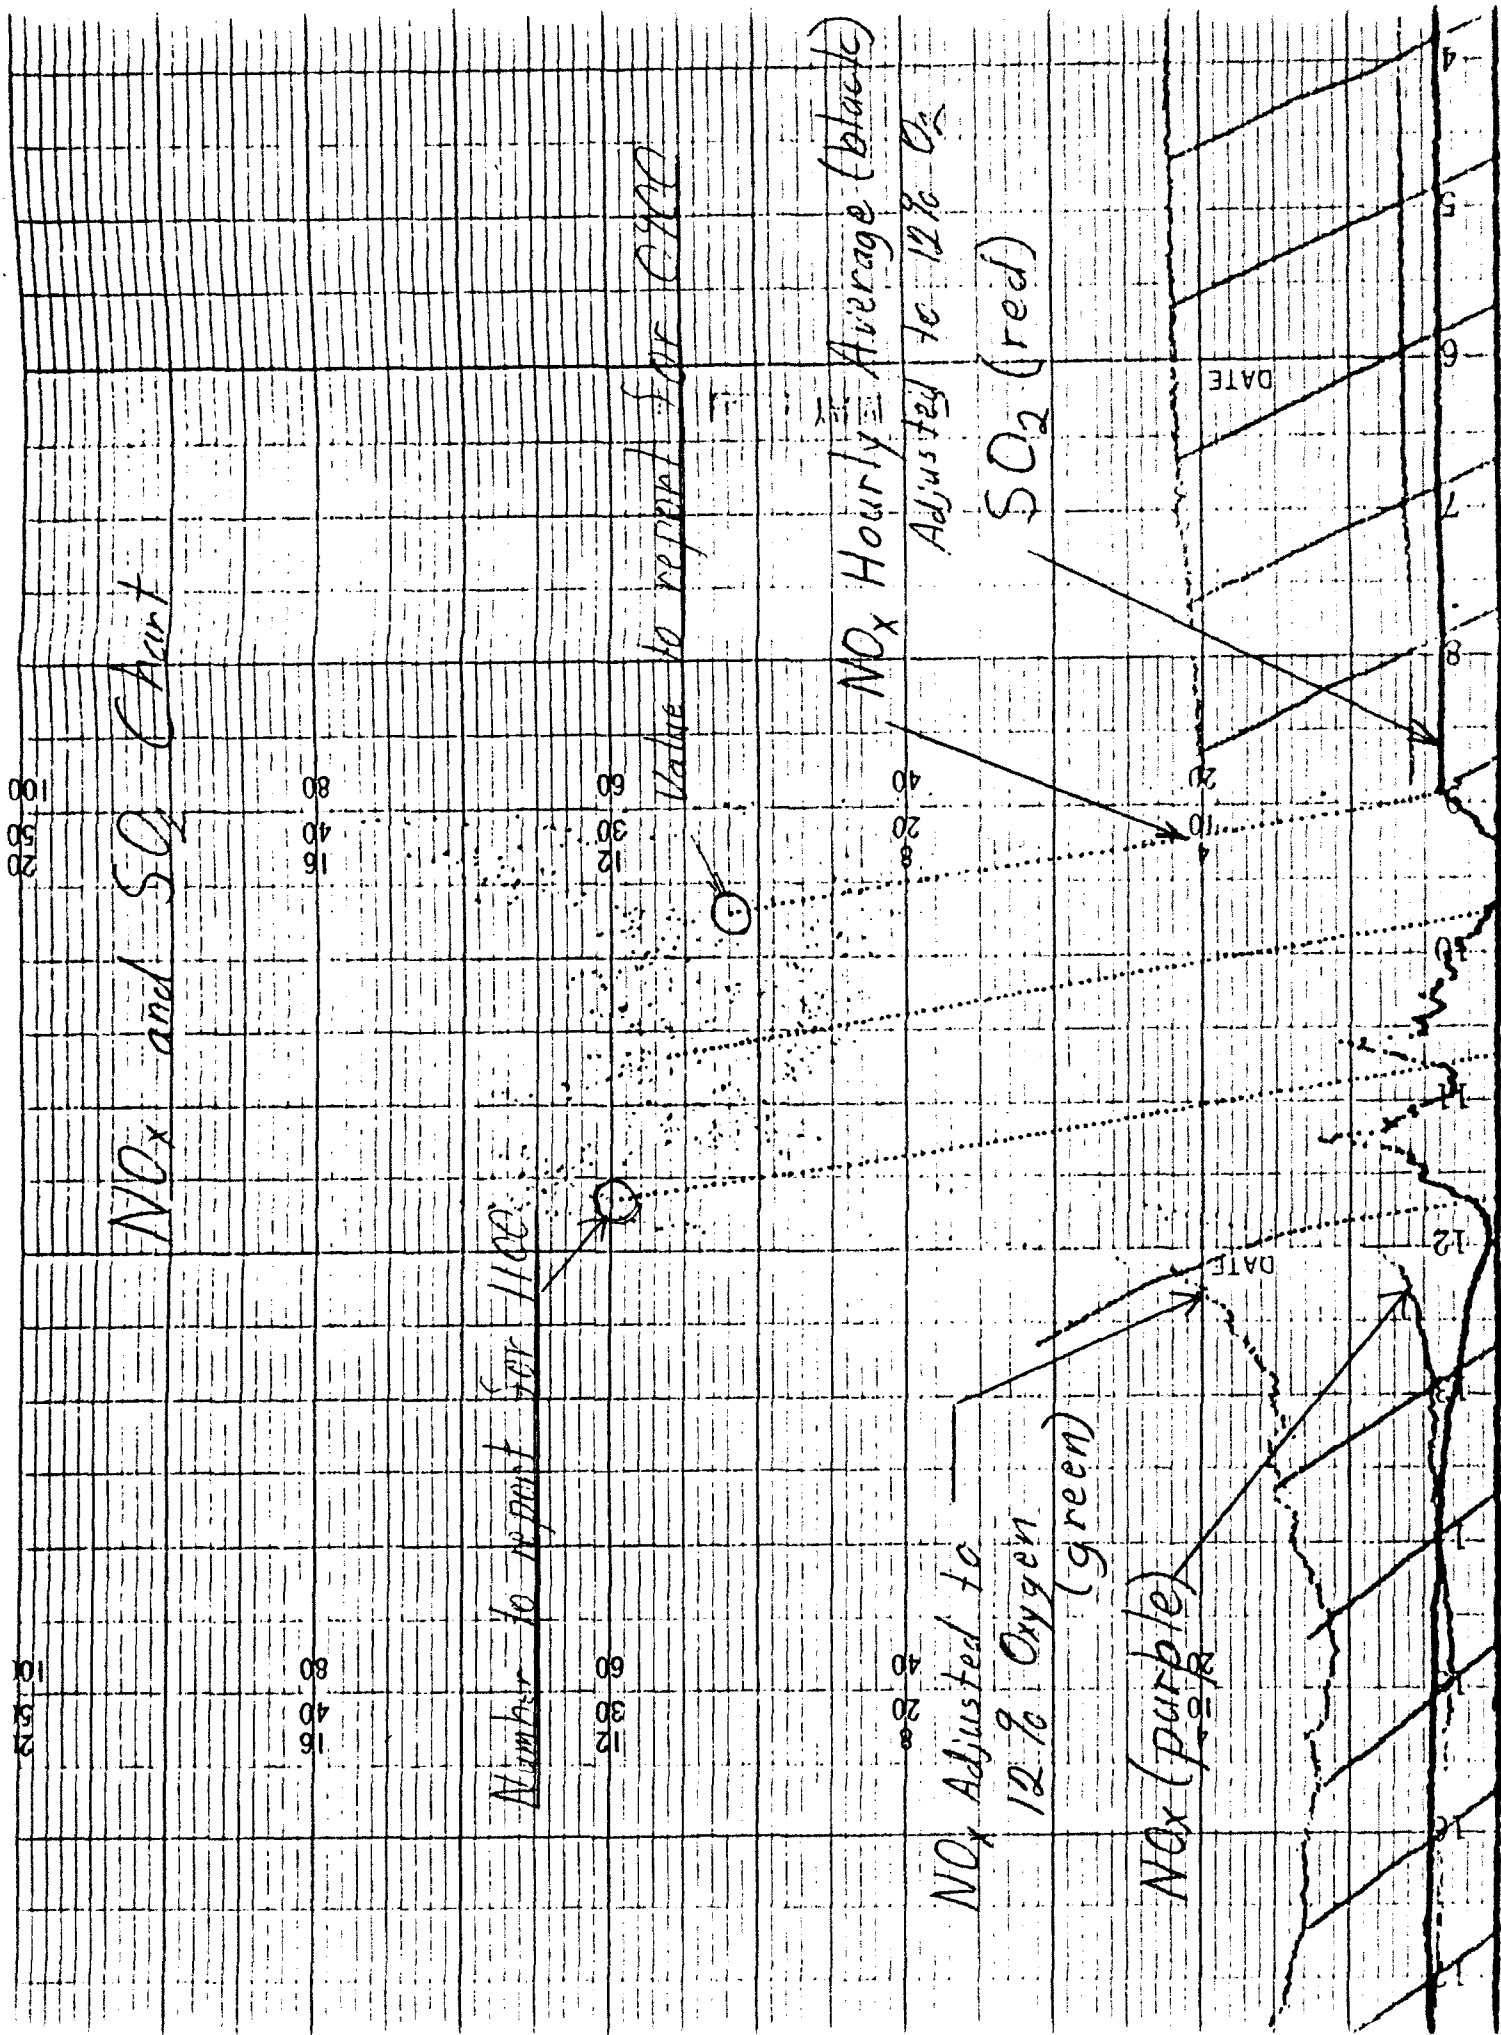 NOx and SO2 Chart
Number to report for 1100
Value to report for 0900
NOx Hourly Average (black)
Adjusted to 12% O2
SO2 (red)
NOx Adjusted to
12% Oxygen
(green)
NOx (purple)
100
50
20
80
40
16
60
30
12
40
20
8
20
10
4
80
40
16
60
30
12
40
20
8
20
DATE
DATE
4
5
6
7
8
9
10
11
12